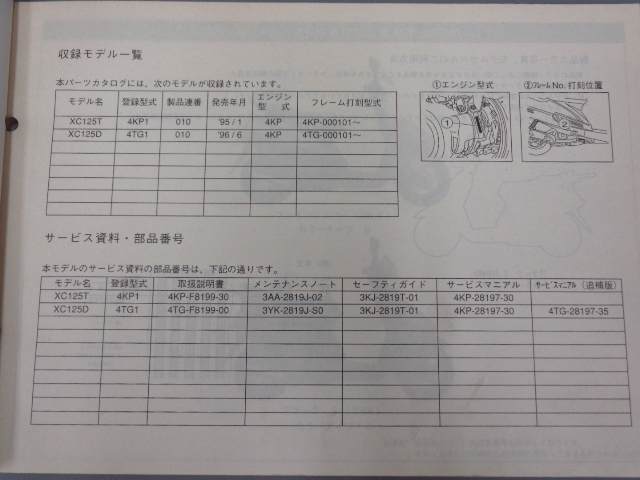 収録モデル一覧
本パーツカタログには、次のモデルが収録されています。
モデル名 登録型式 製品連番 発売年月 エンジン型式 フレーム打刻型式
XC125T 4KP1 010 '95/1 4KP 4KP-000101~
XC125D 4TG1 010 '96/6 4KP 4TG-000101~
①エンジン型式 ②フレームNo.打刻位置
① ②
サービス資料・部品番号
本モデルのサービス資料の部品番号は、下記の通りです。
モデル名 登録型式 取扱説明書 メンテナンスノート セーフティガイド サービスマニアル サービスマニアル(追補版)
XC125T 4KP1 4KP-F8199-30 3AA-2819J-02 3KJ-2819T-01 4KP-28197-30
XC125D 4TG1 4TG-F8199-00 3YK-2819J-S0 3KJ-2819T-01 4KP-28197-30 4TG-28197-35